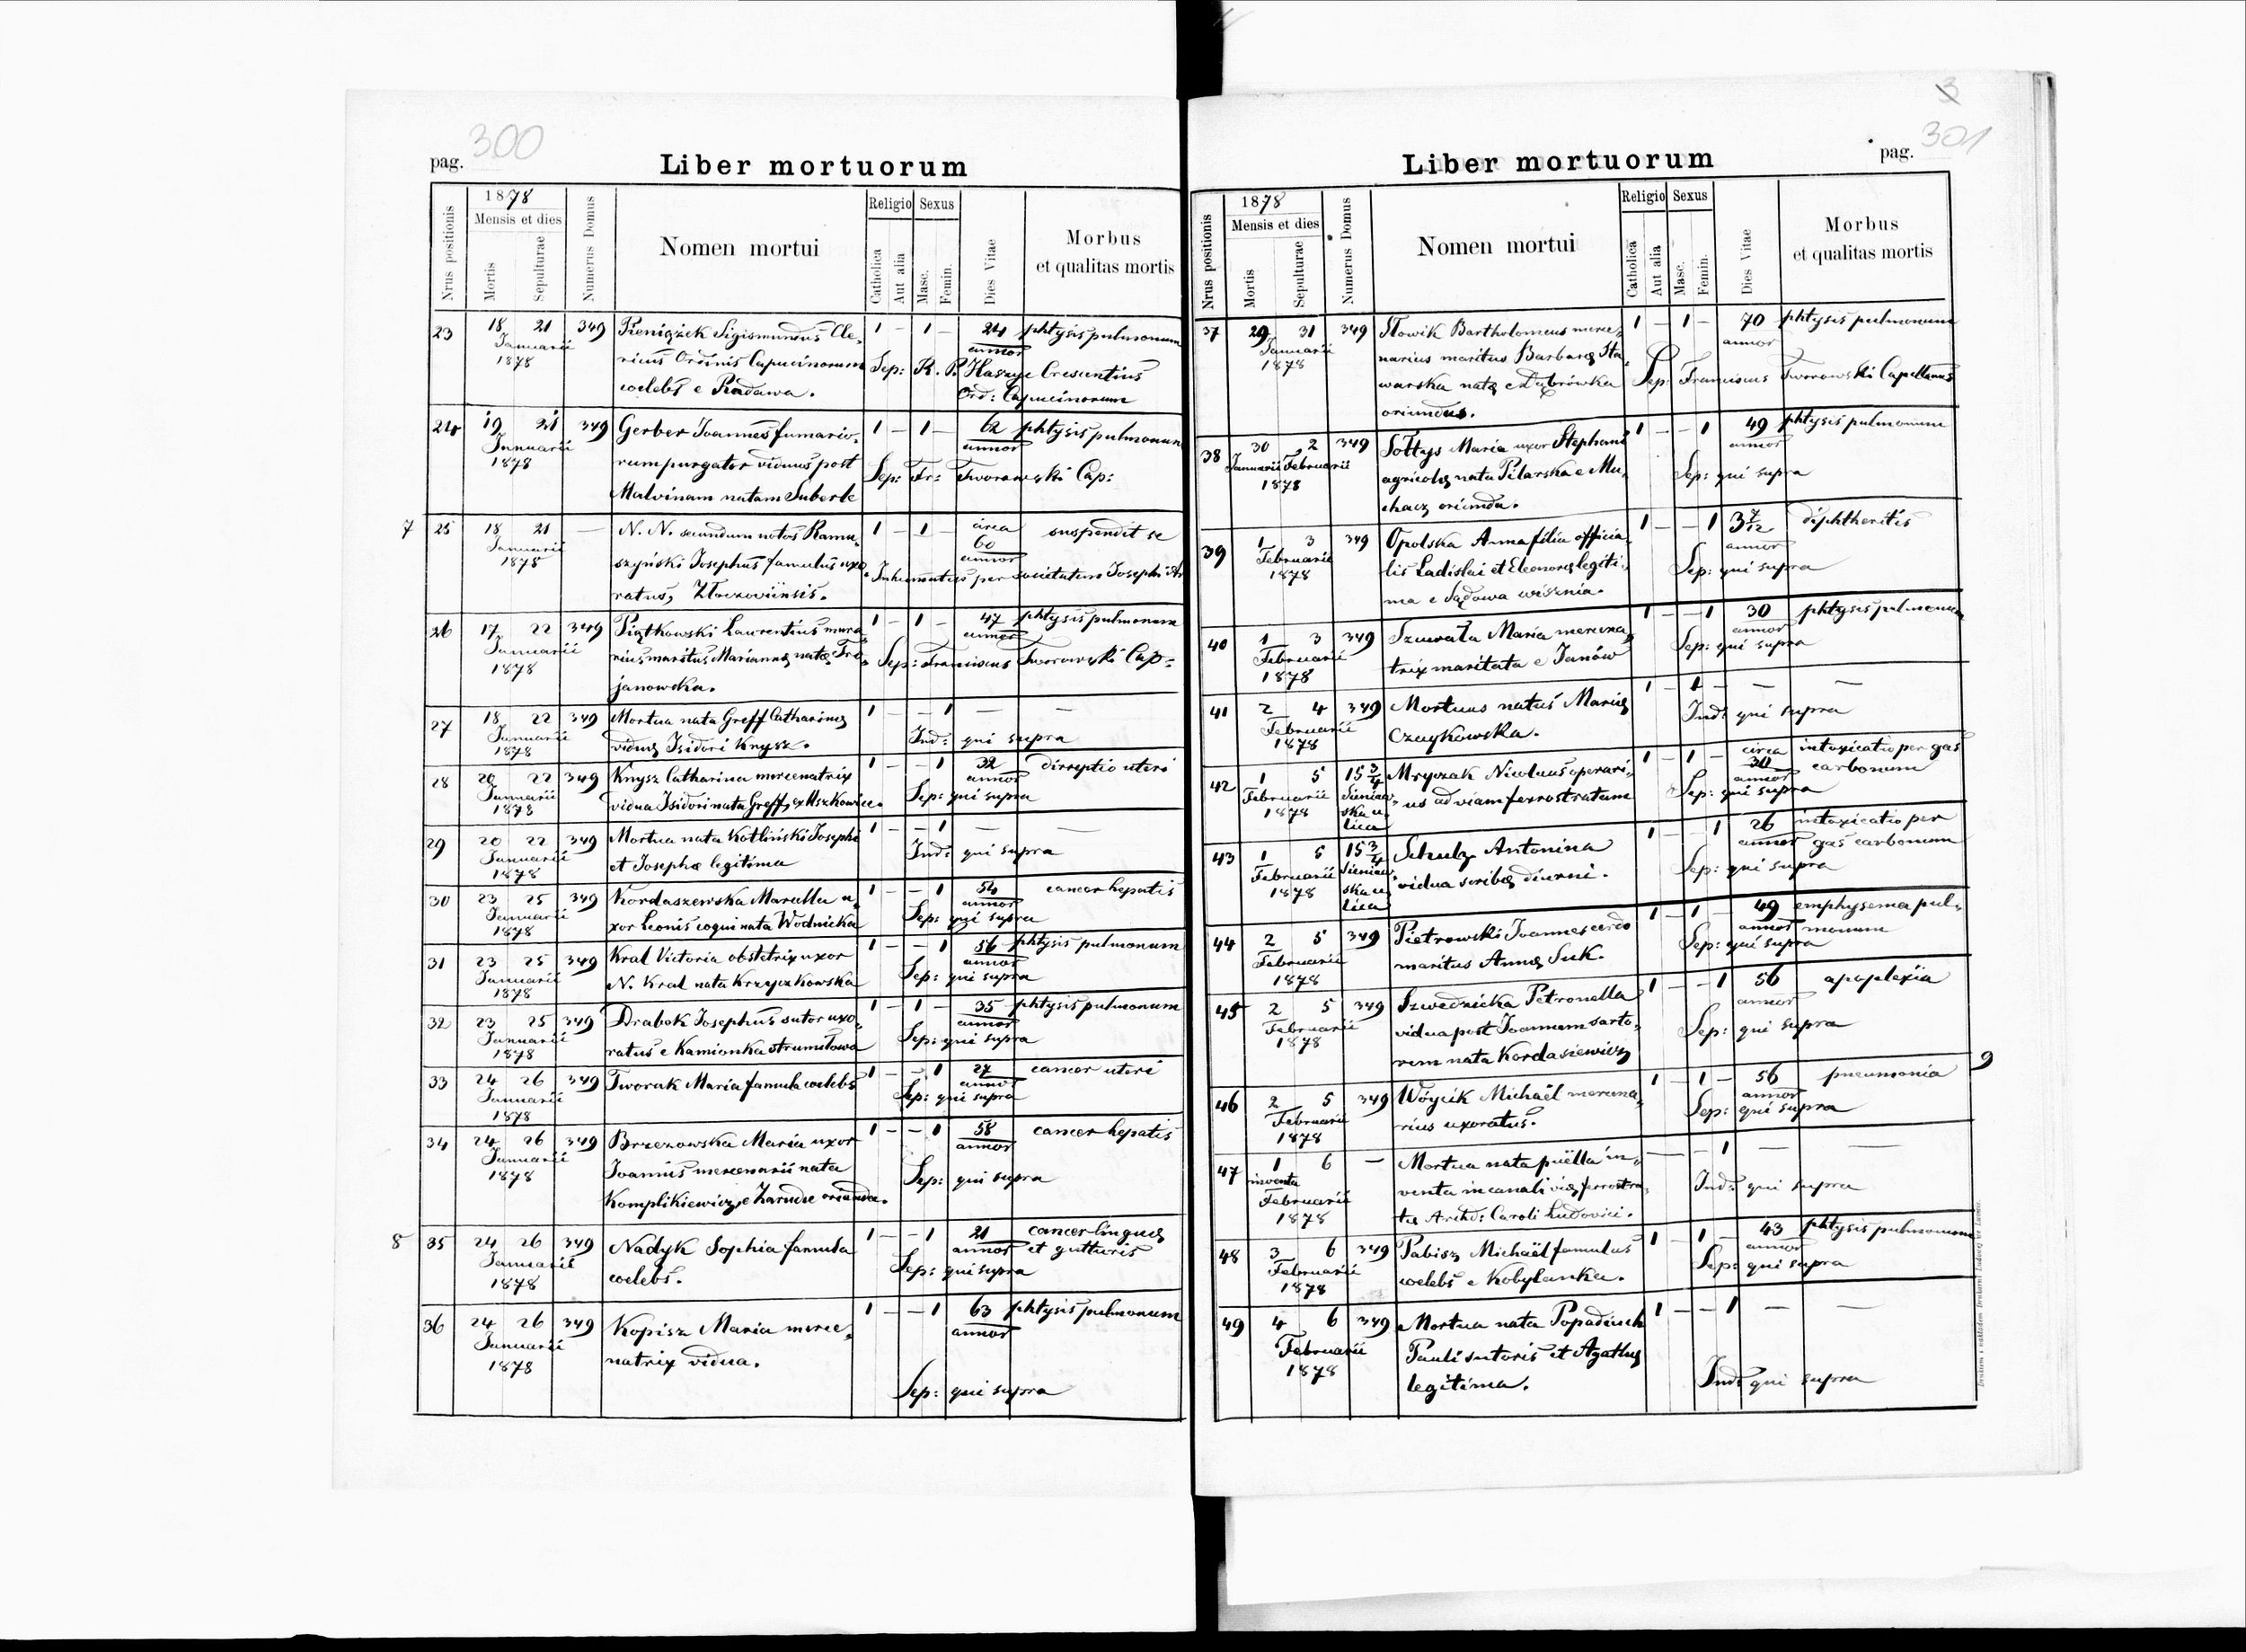 pag. 300
Liber mortuorum
Nrus positionis
1878
Mensis et dies
Mortis
Sepulturae
Numerus Domus
Nomen mortui
Religio
Catholica
Aut alia
Sexus
Masc.
Femin.
Dies Vitae
Morbus
et qualitas mortis
23 18 21 349 Pieniążek Sigismundus Cle- 1 – 1 – 24 phtysis pulmonum
Januarii ricus Ordinis Capucinorum annor
1878 coelebs e Radawa. Sep: R. P. Haszyc Crescentius
Ord: Capucinorum
24 19 21 349 Gerber Joannes fumario- 1 – 1 – 62 phtysis pulmonum
Januarii rum purgator viduus post annor
1878 Malvinam natam Suberle Sep: Fr: Tworowski Cap:
7 25 18 21 – N. N. secundum notos Ramu- 1 – 1 – circa suspendit se
Januarii szyński Josephus famulus uxo- 60 annor
1878 ratus, Złoczoviensis. Inhumatus per societatem Josephi Ar
26 17 22 349 Piątkowski Laurentius mura- 1 – 1 – 47 phtysis pulmonum
Januarii rius maritus Mariannę natæ Tro- annor
1878 janowska. Sep: Franciscus Tworowski Cap:
27 18 22 349 Mortua nata Greff Catharinę 1 – – 1 – –
Januarii viduę Isidori Knysz. Ind: qui supra
1878
28 20 22 349 Knysz Catharina mercenatrix 1 – – 1 32 dirreptio uteri
Januarii vidua Isidori nata Greff, ex Uszkowice. annor
1878 Sep: qui supra
29 20 22 349 Mortua nata Kotliński Josephi 1 – – 1 – –
Januarii et Josephæ legitima Ind: qui supra
1878
30 23 25 349 Kordaszewska Marcella u- 1 – – 1 54 cancer hepatis
Januarii xor Leonis coqui nata Wodnicka annor
1878 Sep: qui supra
31 23 25 349 Kral Victoria obstetrix uxor 1 – – 1 56 phtysis pulmonum
Januarii N. Kral nata Krzyczkowska annor
1878 Sep: qui supra
32 23 25 349 Drabok Josephus sutor uxo- 1 – 1 – 35 phtysis pulmonum
Januarii ratus e Kamionka strumiłowa annor
1878 Sep: qui supra
33 24 26 349 Tworak Maria famula coelebs 1 – – 1 27 cancer uteri
Januarii annor
1878 Sep: qui supra
34 24 26 349 Brzezowska Maria uxor 1 – – 1 58 cancer hepatis
Januarii Joannis mercenarii nata annor
1878 Komplikiewicz, e Zarudce oriunda. Sep: qui supra
8 35 24 26 349 Nadyk Sophia famula 1 – – 1 21 cancer linguę
Januarii coelebs. annor et gutturis
1878 Sep: qui supra
36 24 26 349 Kopisz Maria merce- 1 – – 1 63 phtysis pulmonum
Januarii natrix vidua. annor
1878 Sep: qui supra
3
301
Liber mortuorum
pag.
Nrus positionis
1878
Mensis et dies
Mortis
Sepulturae
Numerus Domus
Nomen mortui
Religio
Catholica
Aut alia
Sexus
Masc.
Femin.
Dies Vitae
Morbus
et qualitas mortis
37 29 31 349 Słowik Bartholomeus merce- 1 – 1 – 70 phtysis pulmonum
Januarii narius maritus Barbarę Sta- annor
1878 warska natę e Dąbrówka Sep: Franciscus Tworowski Capellanus
oriundus.
38 30 2 349 Sołtys Maria uxor Stephani 1 – – 1 49 phtysis pulmonum
Januarii Februarii agricolę nata Pilarska e Mu- annor
1878 chacz oriunda. Sep: qui supra
39 1 3 349 Opolska Anna filia officia- 1 – – 1 3 7/12 diphtheritis
Februarii lis Ladislai et Eleonorę legiti- annor
1878 ma e Sądowa wisznia. Sep: qui supra
40 1 3 349 Szuwała Maria mercena- 1 – – 1 30 phtysis pulmonum
Februarii trix maritata e Janów annor
1878 Sep: qui supra
41 2 4 349 Mortuus natus Marię 1 – 1 – – –
Februarii Czaykowska. Ind: qui supra
1878
42 1 5 15 3/4 Mryczak Nicolaus operari- 1 – 1 – circa intoxicatio per gas
Februarii Sieniaw- us ad viam ferrostratam 30 annor carbonum
1878 ska u- Sep: qui supra
lica
43 1 5 15 3/4 Schulz Antonina 1 – – 1 26 intoxicatio per
Februarii Sieniaw- vidua scribę diurni. annor gas carbonum
1878 ska u- Sep: qui supra
lica
44 2 5 349 Pietrowski Joannes cerdo 1 – 1 – 49 emphysema pul-
Februarii maritus Annę Suk. annor monum
1878 Sep: qui supra
45 2 5 349 Szwednicka Petronella 1 – – 1 56 apoplexia
Februarii vidua post Joannem sarto- annor
1878 rem nata Kordasiewicz Sep: qui supra
46 2 5 349 Wóycik Michaël mercena- 1 – 1 – 56 pneumonia 9
Februarii rius uxoratus. annor
1878 Sep: qui supra
47 1 6 – Mortua nata puëlla in- – – 1 – –
inventa venta in canali vię ferrostra-
Februarii tæ Archd: Caroli Ludovici. Ind: qui supra
1878
48 3 6 349 Pabisz Michaël famulus 1 – 1 – 43 phtysis pulmonum
Februarii coelebs e Kobylanka. annor
1878 Sep: qui supra
49 4 6 349 Mortua nata Popadiuch 1 – – 1 – –
Februarii Pauli sutoris et Agathę
1878 legitima. Ind: qui supra